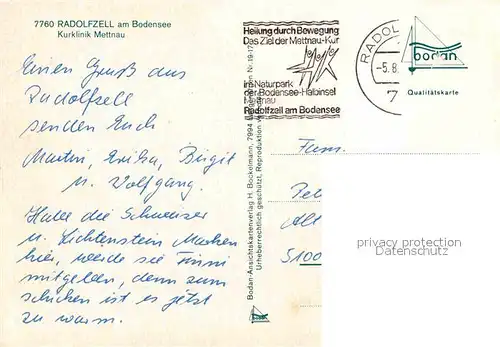 7760 RADOLFZELL am Bodensee
Kurklinik Mettnau
Einen Gruß aus
Radolfzell
senden Euch
Martin, Erika, Birgit
u. Wolfgang.
Habe die Schweizer
u. Lichtenstein Marken
hier, werde sie
mitgeben, denn zum
schicken ist es jetzt
zu warm.
Bodan-Ansichtskartenverlag H. Bockelmann, 7994
Urheberrechtlich geschützt. Reproduktion
Heilung durch Bewegung
Das Ziel der Mettnau-Kur
Im Naturpark
der Bodensee-Halbinsel
Mettnau
Radolfzell am Bodensee
RADOL
-5.8.
7
bodan
Qualitätskarte
Fam.
Pe
Al
5100
privacy protection
Datenschutz